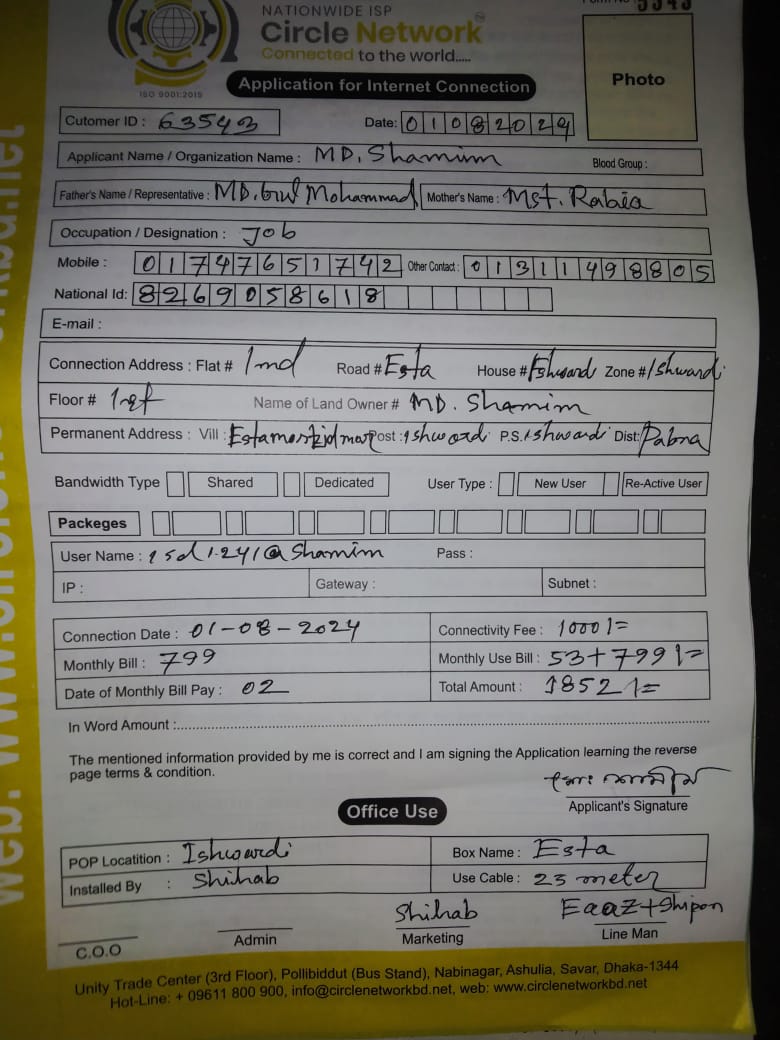 NATIONWIDE ISP
Circle Network
Connected to the world.....
ISO 9001:2015
Application for Internet Connection
Photo
Cutomer ID : 63543
Date: 01082024
Applicant Name / Organization Name : MD. Shamim Blood Group :
Father's Name / Representative : MD. Gul Mohammad Mother's Name : Mst. Rabia
Occupation / Designation : Job
Mobile : 01747651742 Other Contact : 01311498805
National Id: 8269058618
E-mail :
Connection Address : Flat # Road # Esta House # Ishwardi Zone # Ishwardi
Floor # Name of Land Owner # MD. Shamim
Permanent Address : Vill : Post : P.S. Ishwardi Dist: Pabna
Bandwidth Type Shared Dedicated User Type : New User Re-Active User
Packeges
User Name : @Shamim Pass :
IP : Gateway : Subnet :
Connection Date : 01-08-2024 Connectivity Fee : 1000/=
Monthly Bill : 799 Monthly Use Bill : 53+799/=
Date of Monthly Bill Pay : 02 Total Amount : 1852/=
In Word Amount :
The mentioned information provided by me is correct and I am signing the Application learning the reverse
page terms & condition.
Applicant's Signature
Office Use
POP Locatition : Ishwardi Box Name : Esta
Installed By : Shihab Use Cable : 23 meter
Shihab Eaaz+Shipon
C.O.O Admin Marketing Line Man
Unity Trade Center (3rd Floor), Pollibiddut (Bus Stand), Nabinagar, Ashulia, Savar, Dhaka-1344
Hot-Line: + 09611 800 900, info@circlenetworkbd.net, web: www.circlenetworkbd.net